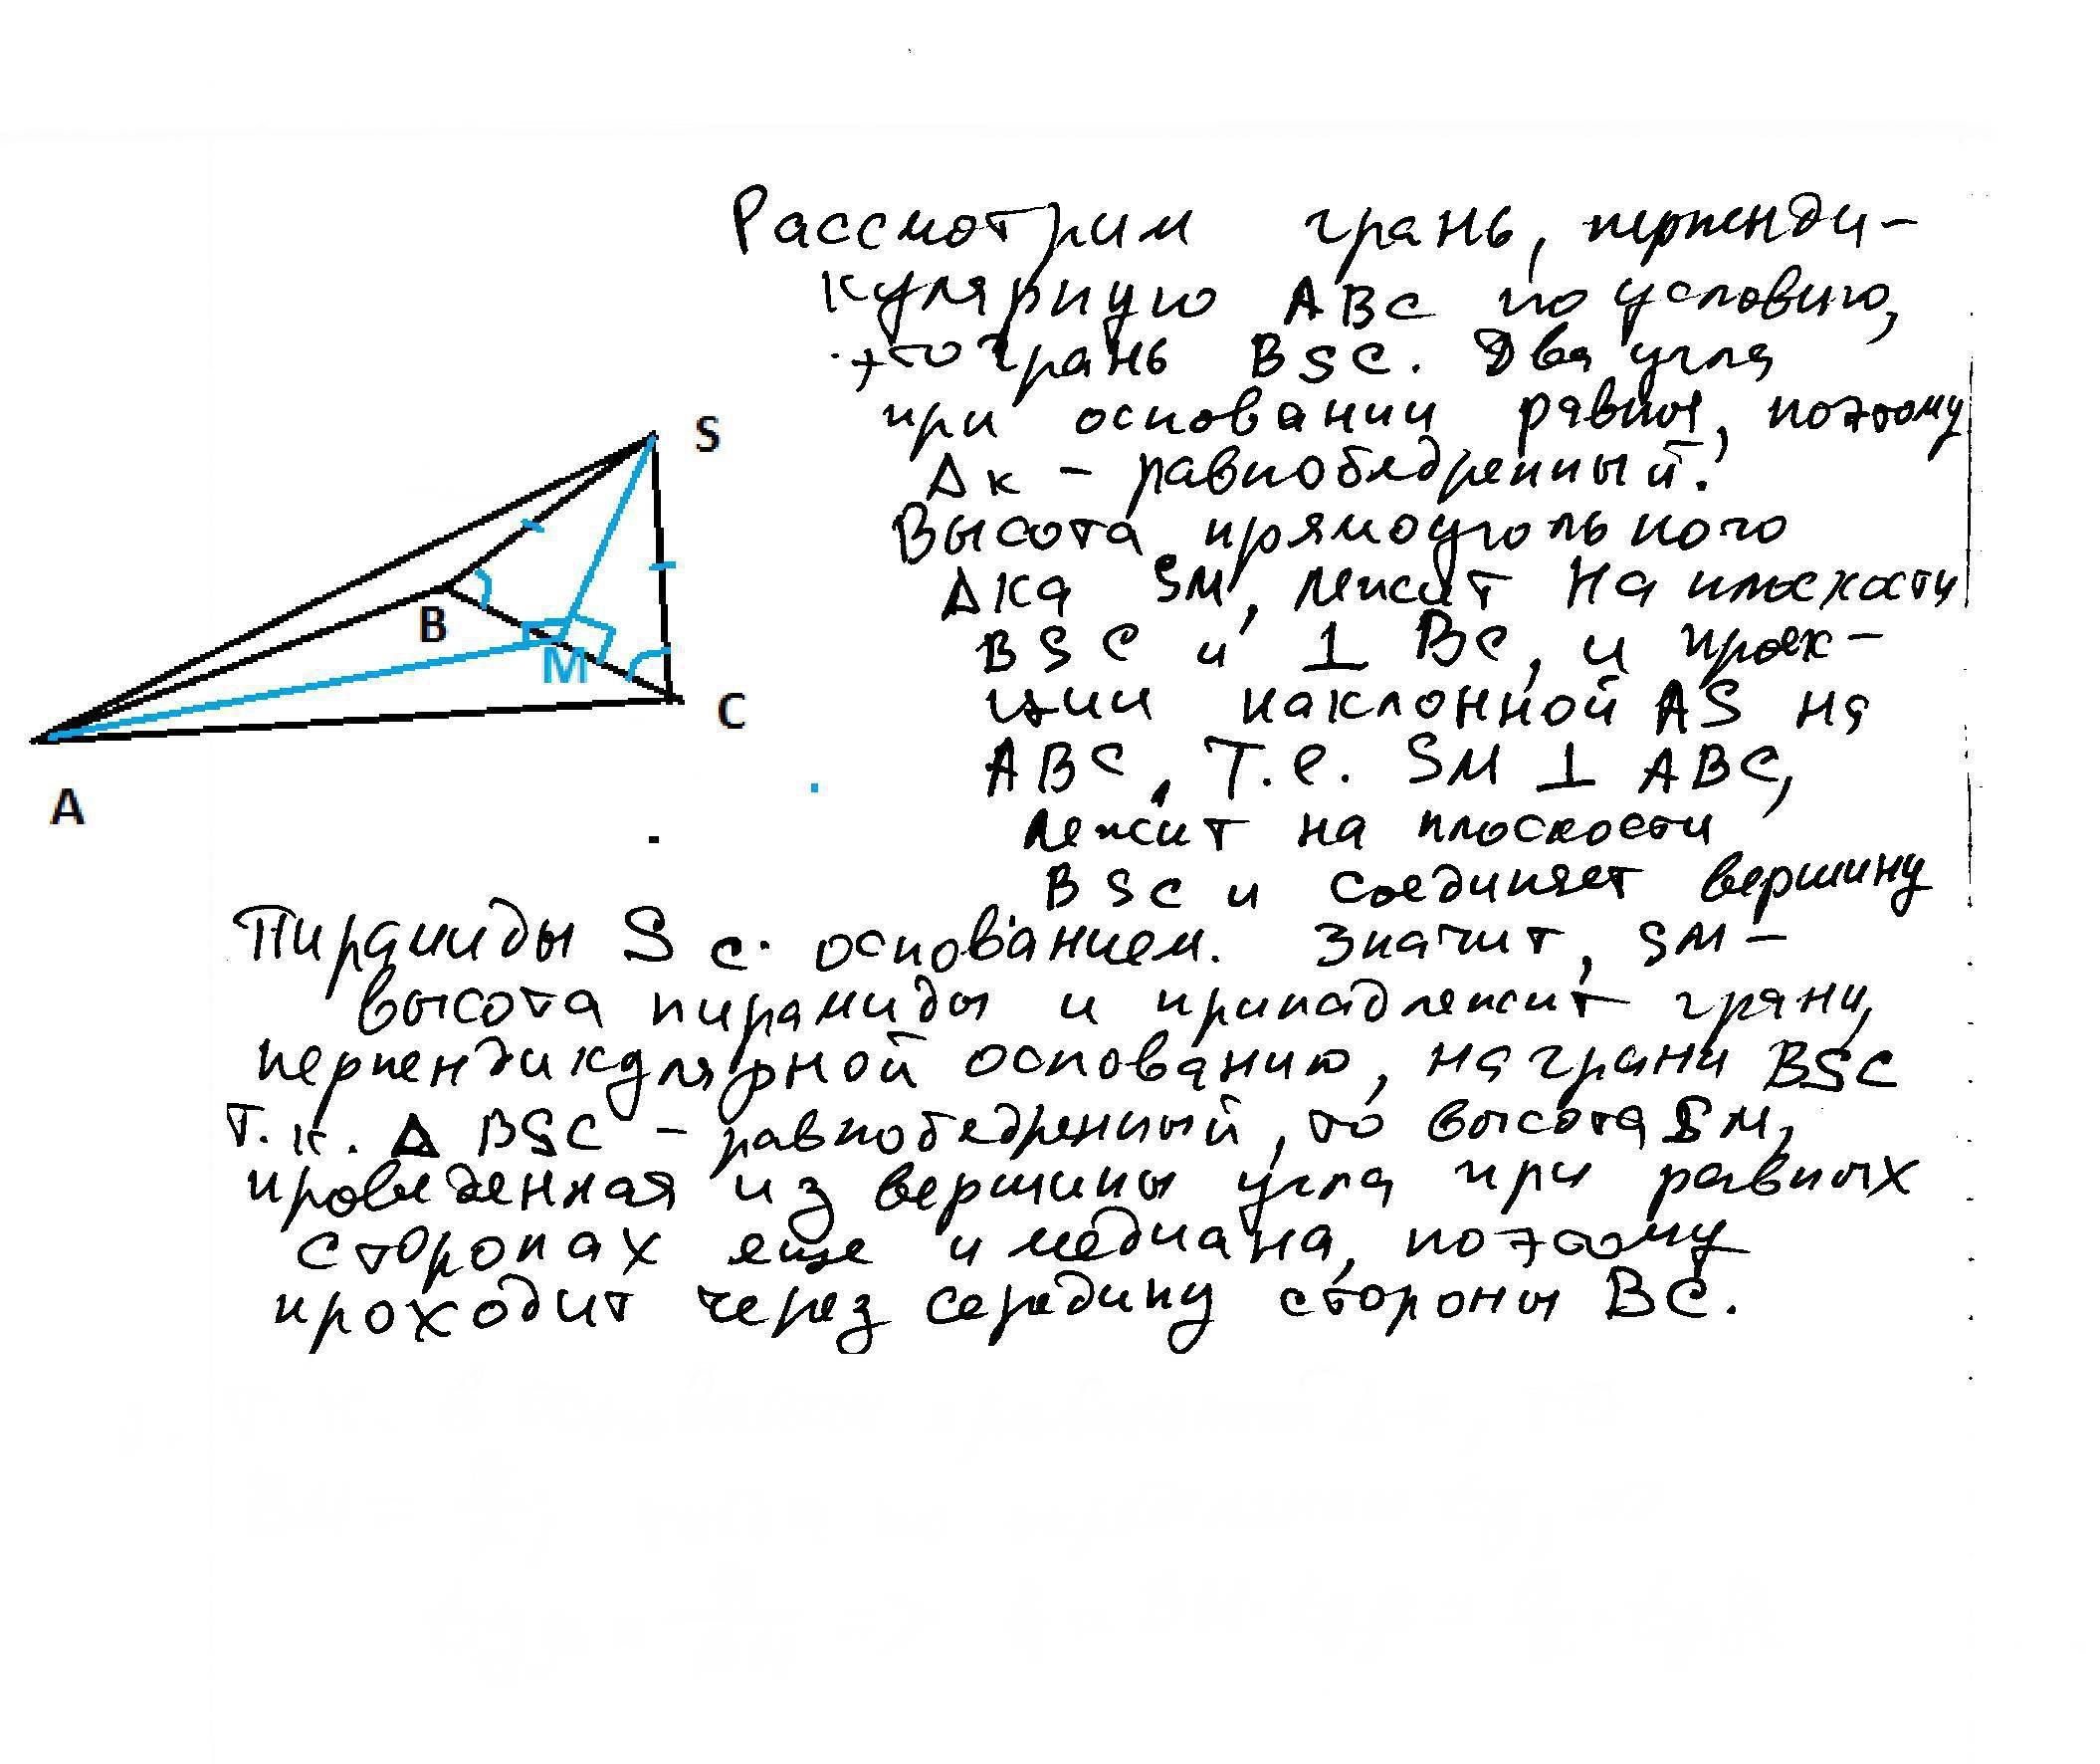 Рассмотрим грань, перпенди-
кулярную ABC по условию,
это грань BSC. Два угла
при основании равны, поэтому
Δк - равнобедренный.
Высота прямоугольного
Δка SM, лежит на плоскости
BSC и ⊥ BC, и проек-
ции наклонной AS на
ABC, т.е. SM ⊥ ABC,
лежит на плоскости
BSC и соединяет вершину
Пирамиды S с основанием. Значит, SM -
высота пирамиды и принадлежит грани,
перпендикулярной основанию, на грани BSC
Т.к. Δ BSC - равнобедренный, то высота SM,
проведенная из вершины угла при равных
сторонах еще и медиана, поэтому
проходит через середину стороны BC.
S
B
M
C
A